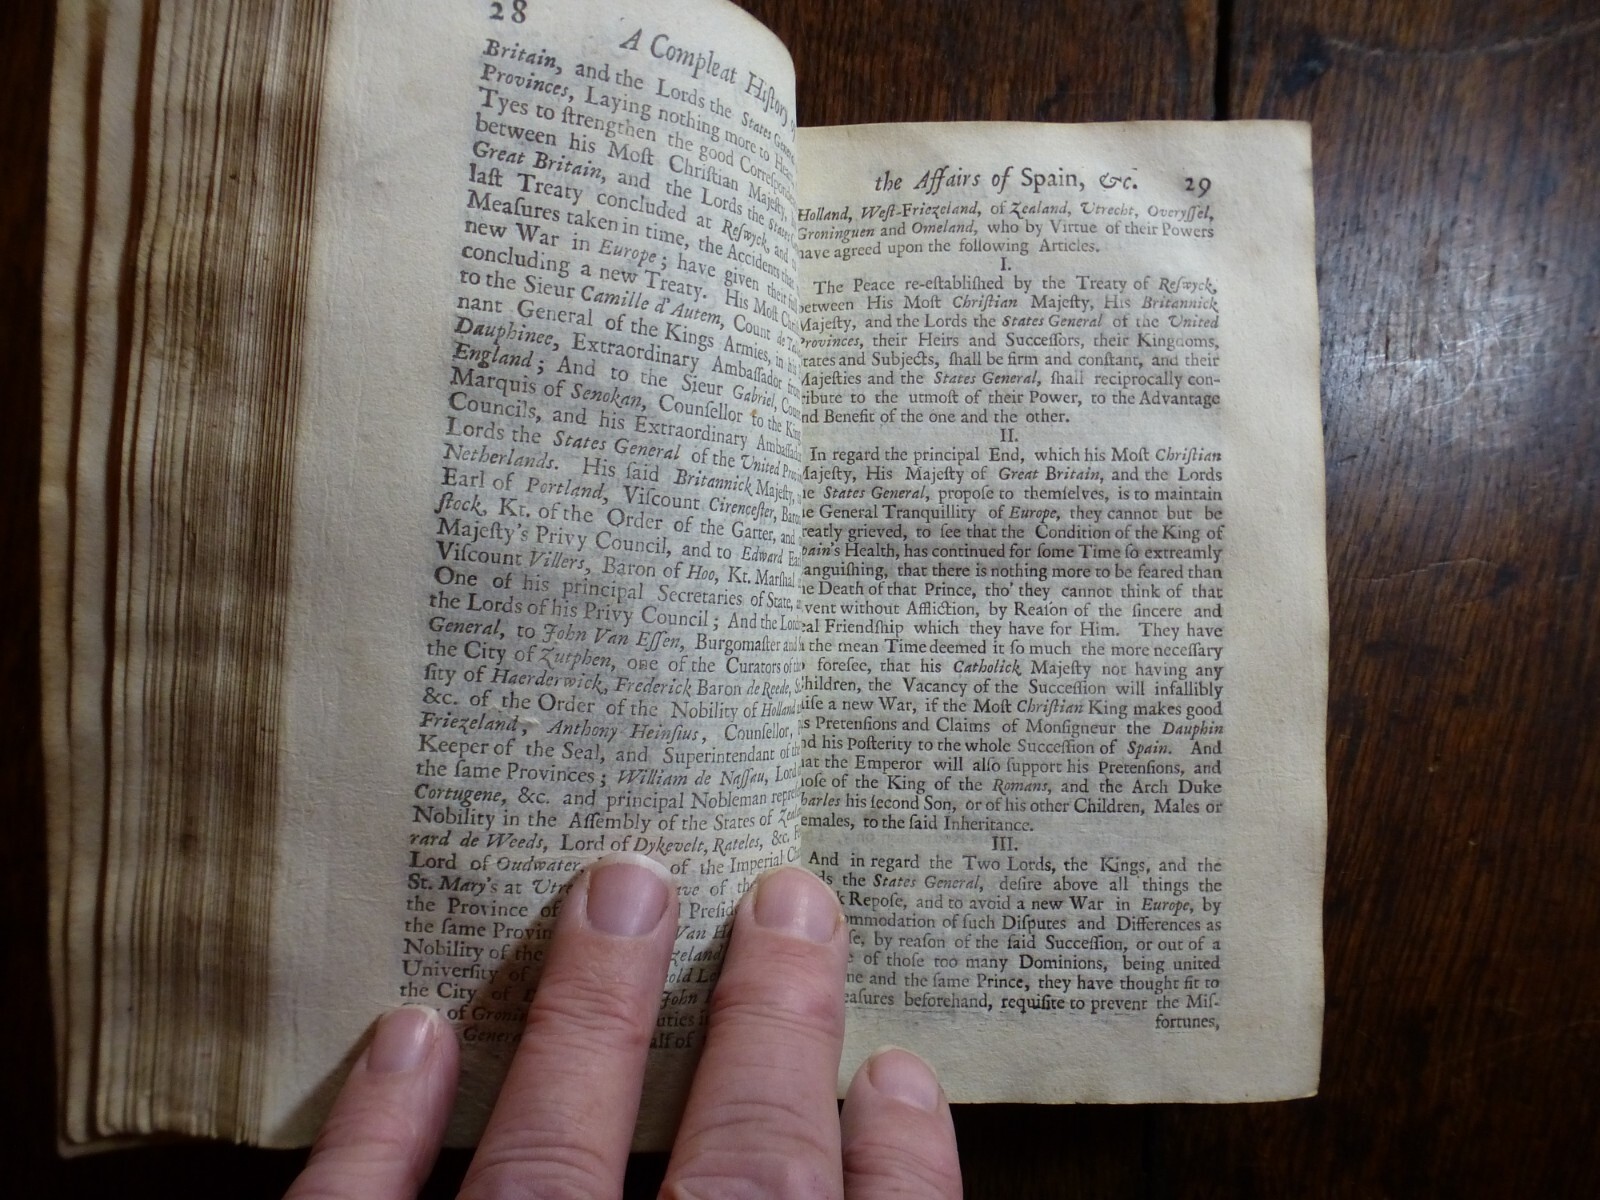 28
A Compleat Hiſtory
Britain, and the Lords the States
Provinces, Laying nothing more to
Tyes to ſtrengthen the good
between his Moſt Chriſtian Majeſty,
Great Britain, and the Lords the States
laſt Treaty concluded at Reſwyck, and
Meaſures taken in time, the Accidents
new War in Europe; have given their
concluding a new Treaty. His Moſt
to the Sieur Camille d'Autem, Count
nant General of the Kings Armies, in
Dauphinee, Extraordinary Ambaſſador
England; And to the Sieur Gabriel,
Marquis of Senokan, Counſellor to the
Councils, and his Extraordinary
Lords the States General of the United
Netherlands. His ſaid Britannick Majeſty,
Earl of Portland, Viſcount Cirenceſter,
ſtock, Kt. of the Order of the Garter, and
Majeſty's Privy Council, and to Edward
Viſcount Villers, Baron of Hoo, Kt. Marſhal
One of his principal Secretaries of State,
the Lords of his Privy Council; And the
General, to John Van Eſſen, Burgomaſter and
the City of Zutphen, one of the Curators of
ſity of Haerderwick, Frederick Baron de Reede,
&c. of the Order of the Nobility of Holland
Friezeland, Anthony Heinſius, Counſellor,
Keeper of the Seal, and Superintendant of
the ſame Provinces; William de Naſſau, Lord
Cortugene, &c. and principal Nobleman
Nobility in the Aſſembly of the States of
rard de Weeds, Lord of Dykevelt, Rateles, &c.
Lord of Oudwater, of the Imperial
St. Mary's at of
the Province of
the ſame Van
Nobility of the
University of
the City of John
of
of
the Affairs of Spain, &c. 29
Holland, Weſt-Friezeland, of Zealand, Utrecht, Overyſſel,
Groninguen and Omeland, who by Virtue of their Powers
have agreed upon the following Articles.
I.
The Peace re-eſtabliſhed by the Treaty of Reſwyck,
between His Moſt Chriſtian Majeſty, His Britannick
Majeſty, and the Lords the States General of the United
Provinces, their Heirs and Succeſſors, their Kingdoms,
States and Subjects, ſhall be firm and conſtant, and their
Majeſties and the States General, ſhall reciprocally con-
tribute to the utmoſt of their Power, to the Advantage
and Benefit of the one and the other.
II.
In regard the principal End, which his Moſt Chriſtian
Majeſty, His Majeſty of Great Britain, and the Lords
the States General, propoſe to themſelves, is to maintain
the General Tranquillity of Europe, they cannot but be
greatly grieved, to ſee that the Condition of the King of
Spain's Health, has continued for ſome Time ſo extreamly
languiſhing, that there is nothing more to be feared than
the Death of that Prince, tho' they cannot think of that
Event without Affliction, by Reaſon of the ſincere and
real Friendſhip which they have for Him. They have
in the mean Time deemed it ſo much the more neceſſary
to foreſee, that his Catholick Majeſty not having any
Children, the Vacancy of the Succeſſion will infallibly
raiſe a new War, if the Moſt Chriſtian King makes good
his Pretenſions and Claims of Monſigneur the Dauphin
and his Poſterity to the whole Succeſſion of Spain. And
that the Emperor will alſo ſupport his Pretenſions, and
thoſe of the King of the Romans, and the Arch Duke
Charles his ſecond Son, or of his other Children, Males or
Females, to the ſaid Inheritance.
III.
And in regard the Two Lords, the Kings, and the
the States General, deſire above all things the
Repoſe, and to avoid a new War in Europe, by
of ſuch Diſputes and Differences as
by reaſon of the ſaid Succeſſion, or out of a
of thoſe too many Dominions, being united
and the ſame Prince, they have thought fit to
beforehand, requiſite to prevent the Miſ-
fortunes,